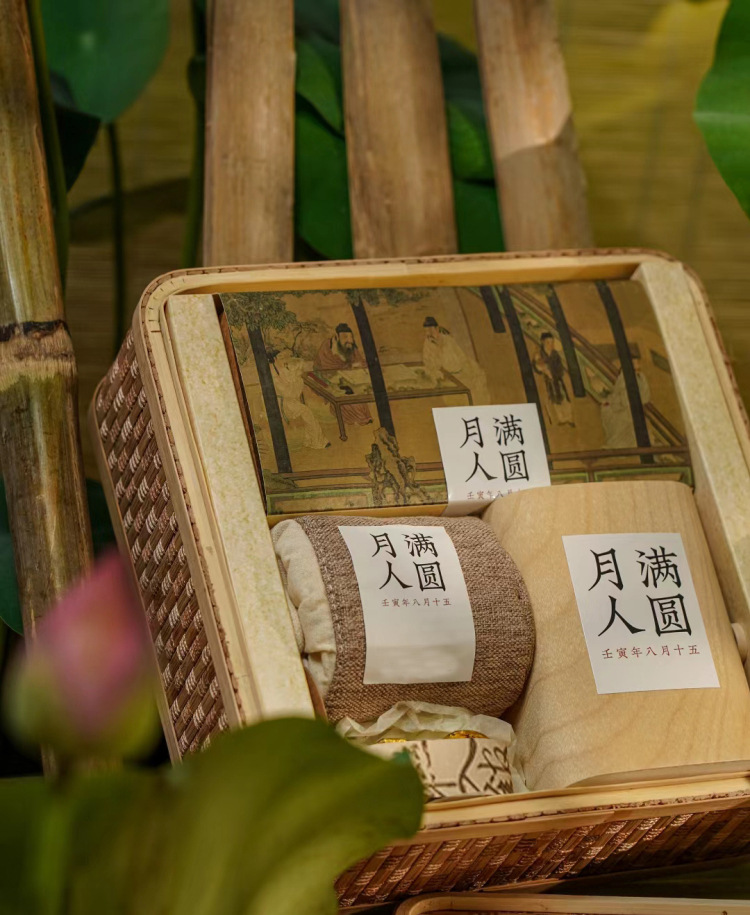 月满
人圆
壬寅年八月
月满
人圆
壬寅年八月十五
月满
人圆
壬寅年八月十五